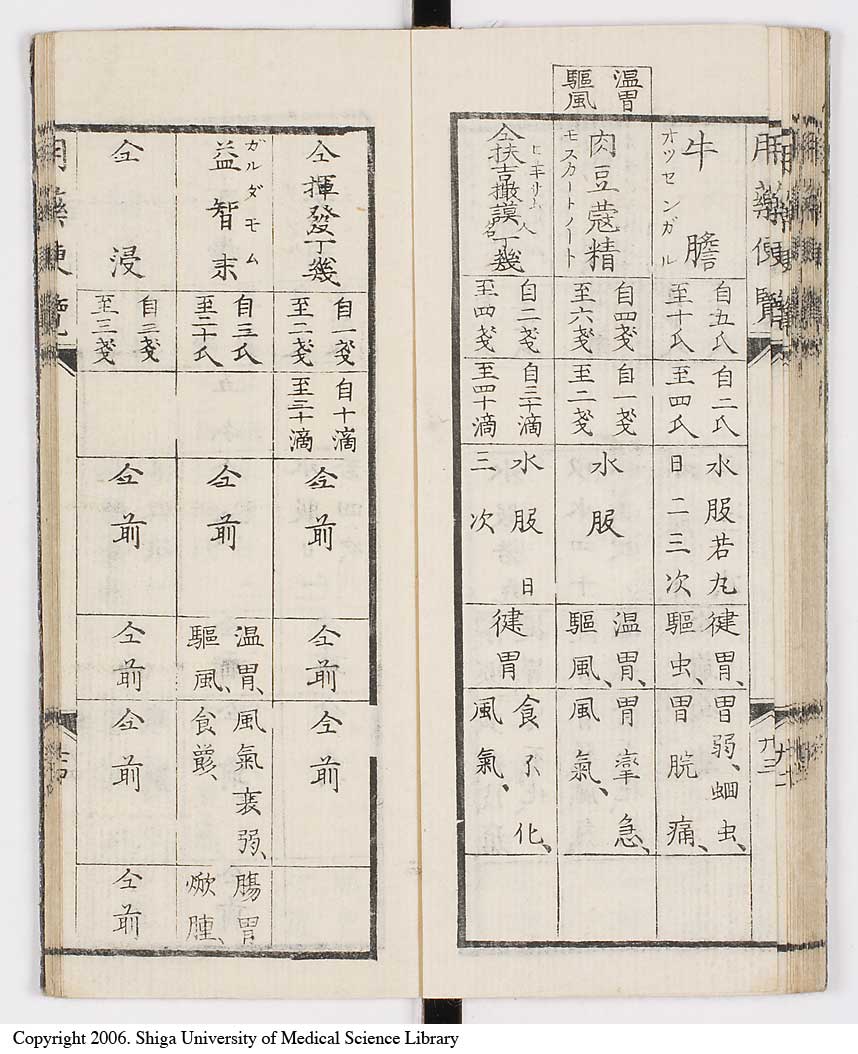 温胃
驅風
用藥便覽
廾三
牛膽
オツセンガル
自五氏
至十氏
自二氏
至四氏
水服若丸
日二三次
健胃、
驅虫、
胃弱、蛔虫、
胃脘痛、
肉豆蔻精
モスカートノート
自四戔
至六戔
自一戔
至二戔
水服
温胃、
驅風、
胃攣急、
風氣、
人名
仝扶吉撒謨丁幾
自二戔
至四戔
自三十滴
至四十滴
水服日
三次
健胃
食不化、
風氣、
仝揮發丁幾
自一戔
至二戔
自十滴
至三十滴
仝前
仝前
仝前
ガルダモム
益智末
自三氏
至二十氏
仝前
温胃、
驅風、
風氣衰弱、
腸胃
焮腫、
仝浸
至三戔
仝前
仝前
仝前
仝前
用藥便覽
Copyright 2006. Shiga University of Medical Science Library